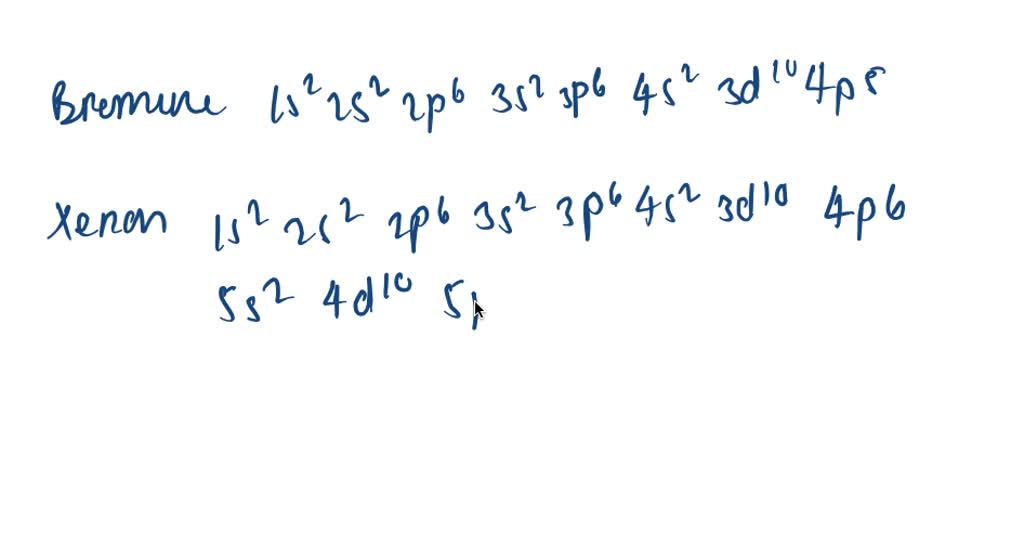 Bromine 1s² 2s² 2p⁶ 3s² 3p⁶ 4s² 3d¹⁰ 4p⁵
Xenon 1s² 2s² 2p⁶ 3s² 3p⁶ 4s² 3d¹⁰ 4p⁶
5s² 4d¹⁰ 5p